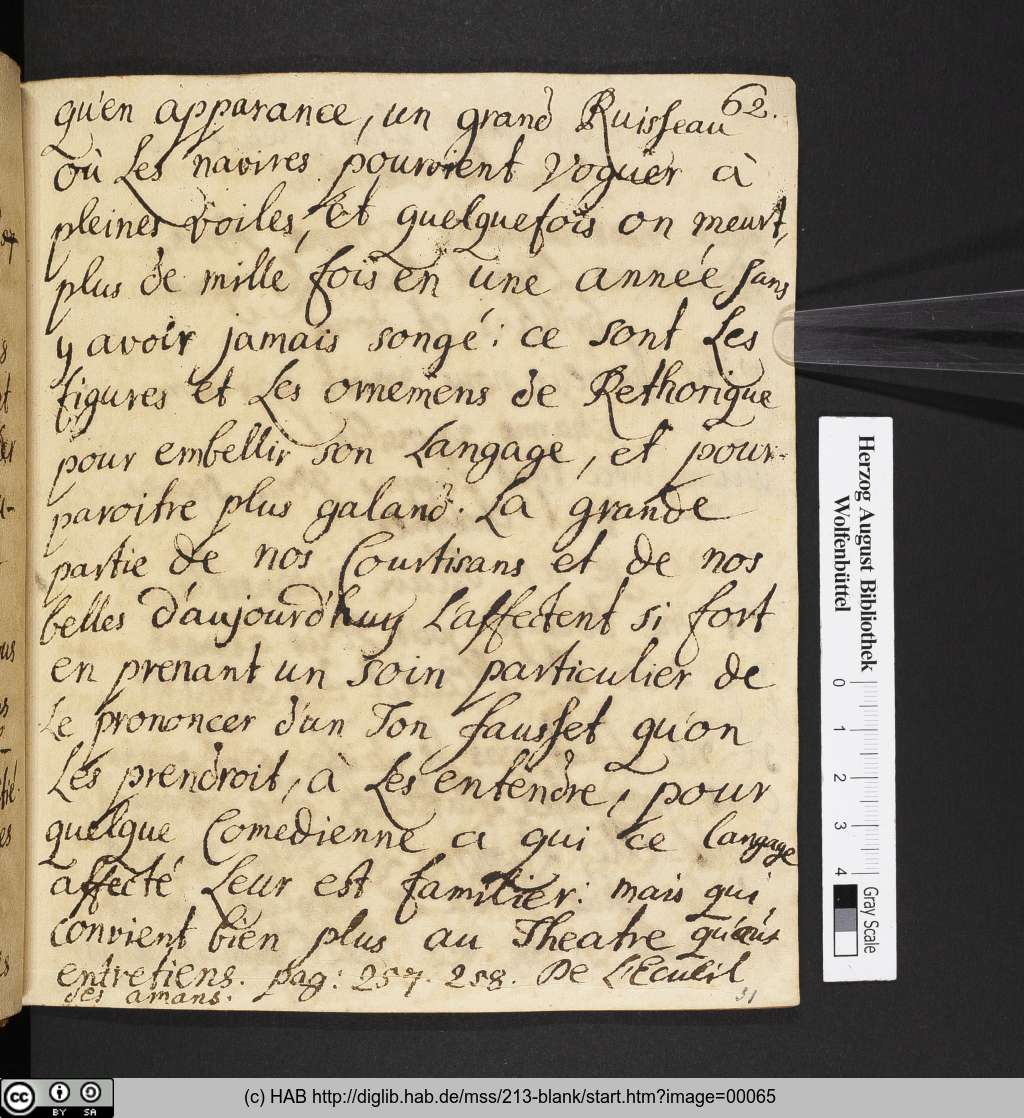 62.
qu'en apparance, un grand Ruisseau
où Les navires pourroient voguer à
pleines voiles, Et quelquefois on meurt,
plus de mille fois en une année, sans
y avoir jamais songé: ce sont Les
figures et Les ornemens de Rethorique
pour embellir son Langage, et pour-
paroitre plus galand. La grande
partie de nos Courtisans et de nos
belles d'aujourd'huy L'affectent si fort
en prenant un soin particulier de
Le prononcer d'un Ton fausset qu'on
Les prendroit, à Les entendre, pour
quelque Comedienne a qui ce langage
affecté Leur est familier: mais qui
convient bien plus au Theatre qu'aus
entretiens. pag: 257. 258. De L'Ecueil
des amans.
51
Herzog August Bibliothek
Wolfenbüttel
0 1 2 3 4
Gray Scale
cc BY SA
(c) HAB http://diglib.hab.de/mss/213-blank/start.htm?image=00065